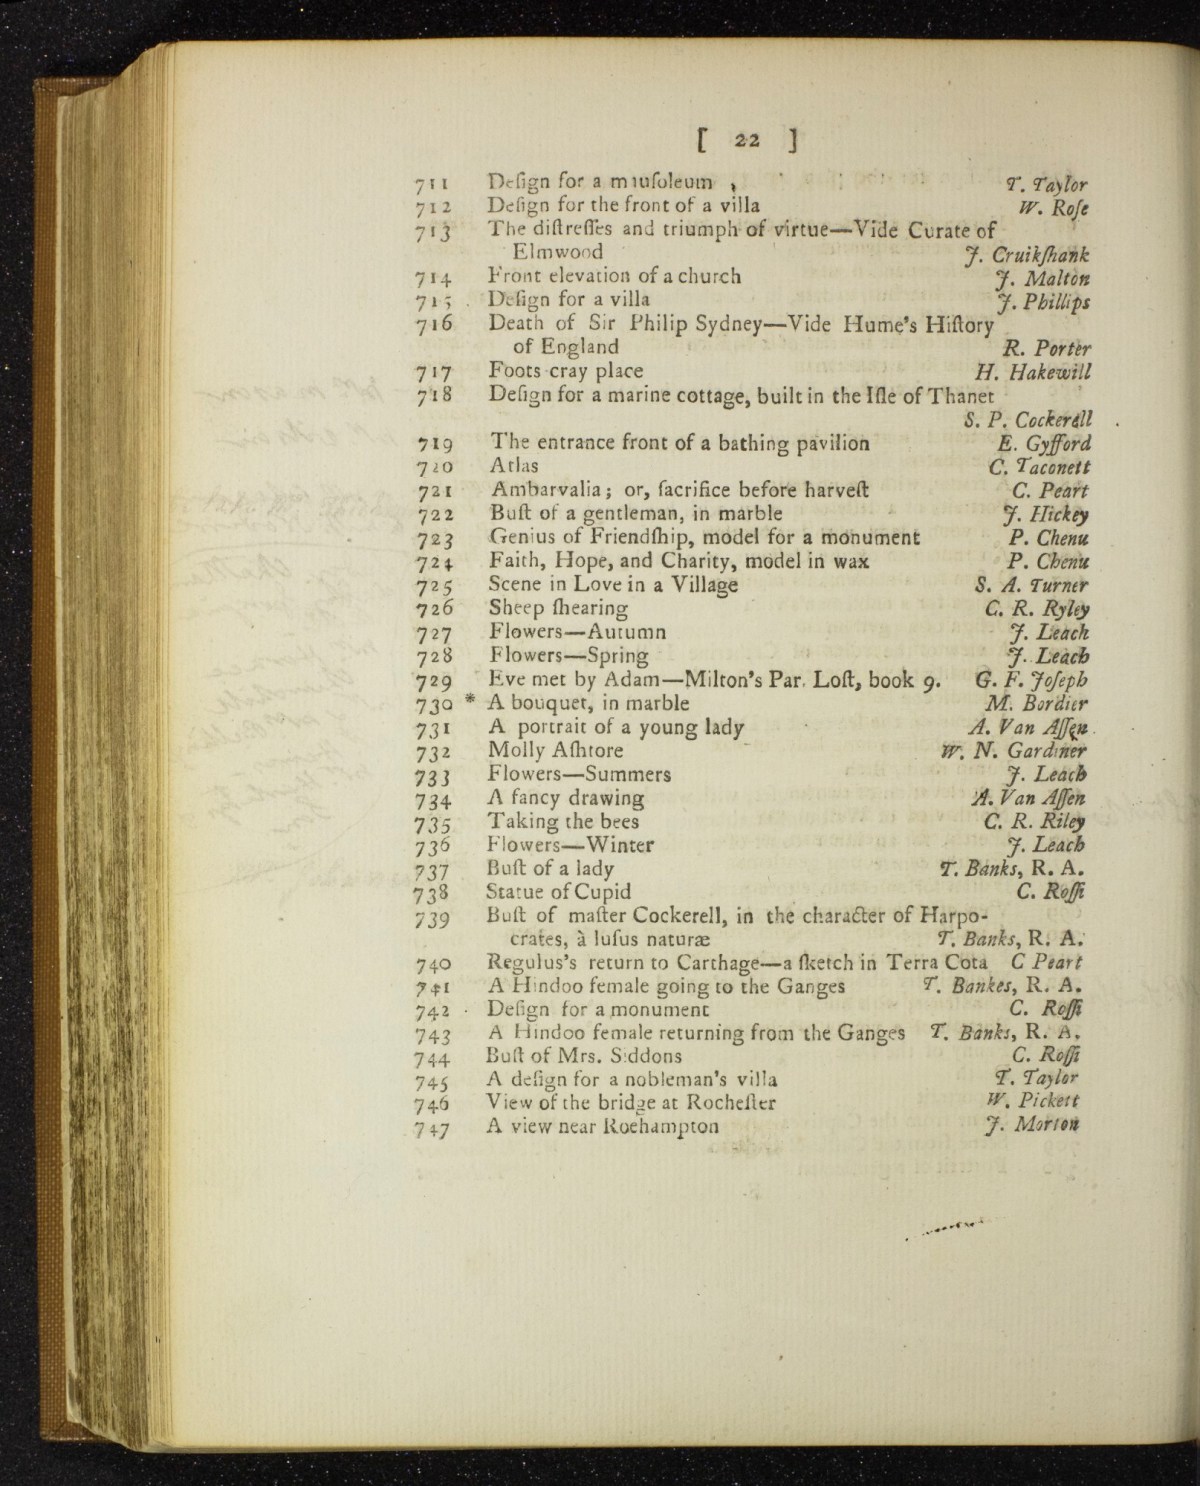 [ 22 ]
711 Deſign for a mauſoleum , T. Taylor
712 Deſign for the front of a villa W. Roſe
713 The diſtreſſes and triumph of virtue—Vide Curate of
Elmwood J. Cruikſhank
714 Front elevation of a church J. Malton
715 Deſign for a villa J. Phillips
716 Death of Sir Philip Sydney—Vide Hume's Hiſtory
of England R. Porter
717 Foots cray place H. Hakewill
718 Deſign for a marine cottage, built in the Iſle of Thanet
S. P. Cockerell
719 The entrance front of a bathing pavilion E. Gyfford
720 Atlas C. Taconett
721 Ambarvalia; or, ſacrifice before harveſt C. Peart
722 Buſt of a gentleman, in marble J. Hickey
723 Genius of Friendſhip, model for a monument P. Chenu
724 Faith, Hope, and Charity, model in wax P. Chenu
725 Scene in Love in a Village S. A. Turner
726 Sheep ſhearing C. R. Ryley
727 Flowers—Autumn J. Leach
728 Flowers—Spring J. Leach
729 Eve met by Adam—Milton's Par. Loſt, book 9. G. F. Joſeph
730 * A bouquet, in marble M. Bordier
731 A portrait of a young lady A. Van Aſſen
732 Molly Aſhtore W. N. Gardiner
733 Flowers—Summers J. Leach
734 A fancy drawing A. Van Aſſen
735 Taking the bees C. R. Riley
736 Flowers—Winter J. Leach
737 Buſt of a lady T. Banks, R. A.
738 Statue of Cupid C. Roſſi
739 Buſt of maſter Cockerell, in the character of Harpo-
crates, à luſus naturæ T. Banks, R. A.
740 Regulus's return to Carthage—a ſketch in Terra Cota C Peart
741 A Hindoo female going to the Ganges T. Bankes, R. A.
742 Deſign for a monument C. Roſſi
743 A Hindoo female returning from the Ganges T. Banks, R. A.
744 Buſt of Mrs. Siddons C. Roſſi
745 A deſign for a nobleman's villa T. Taylor
746 View of the bridge at Rocheſter W. Pickett
747 A view near Roehampton J. Morton